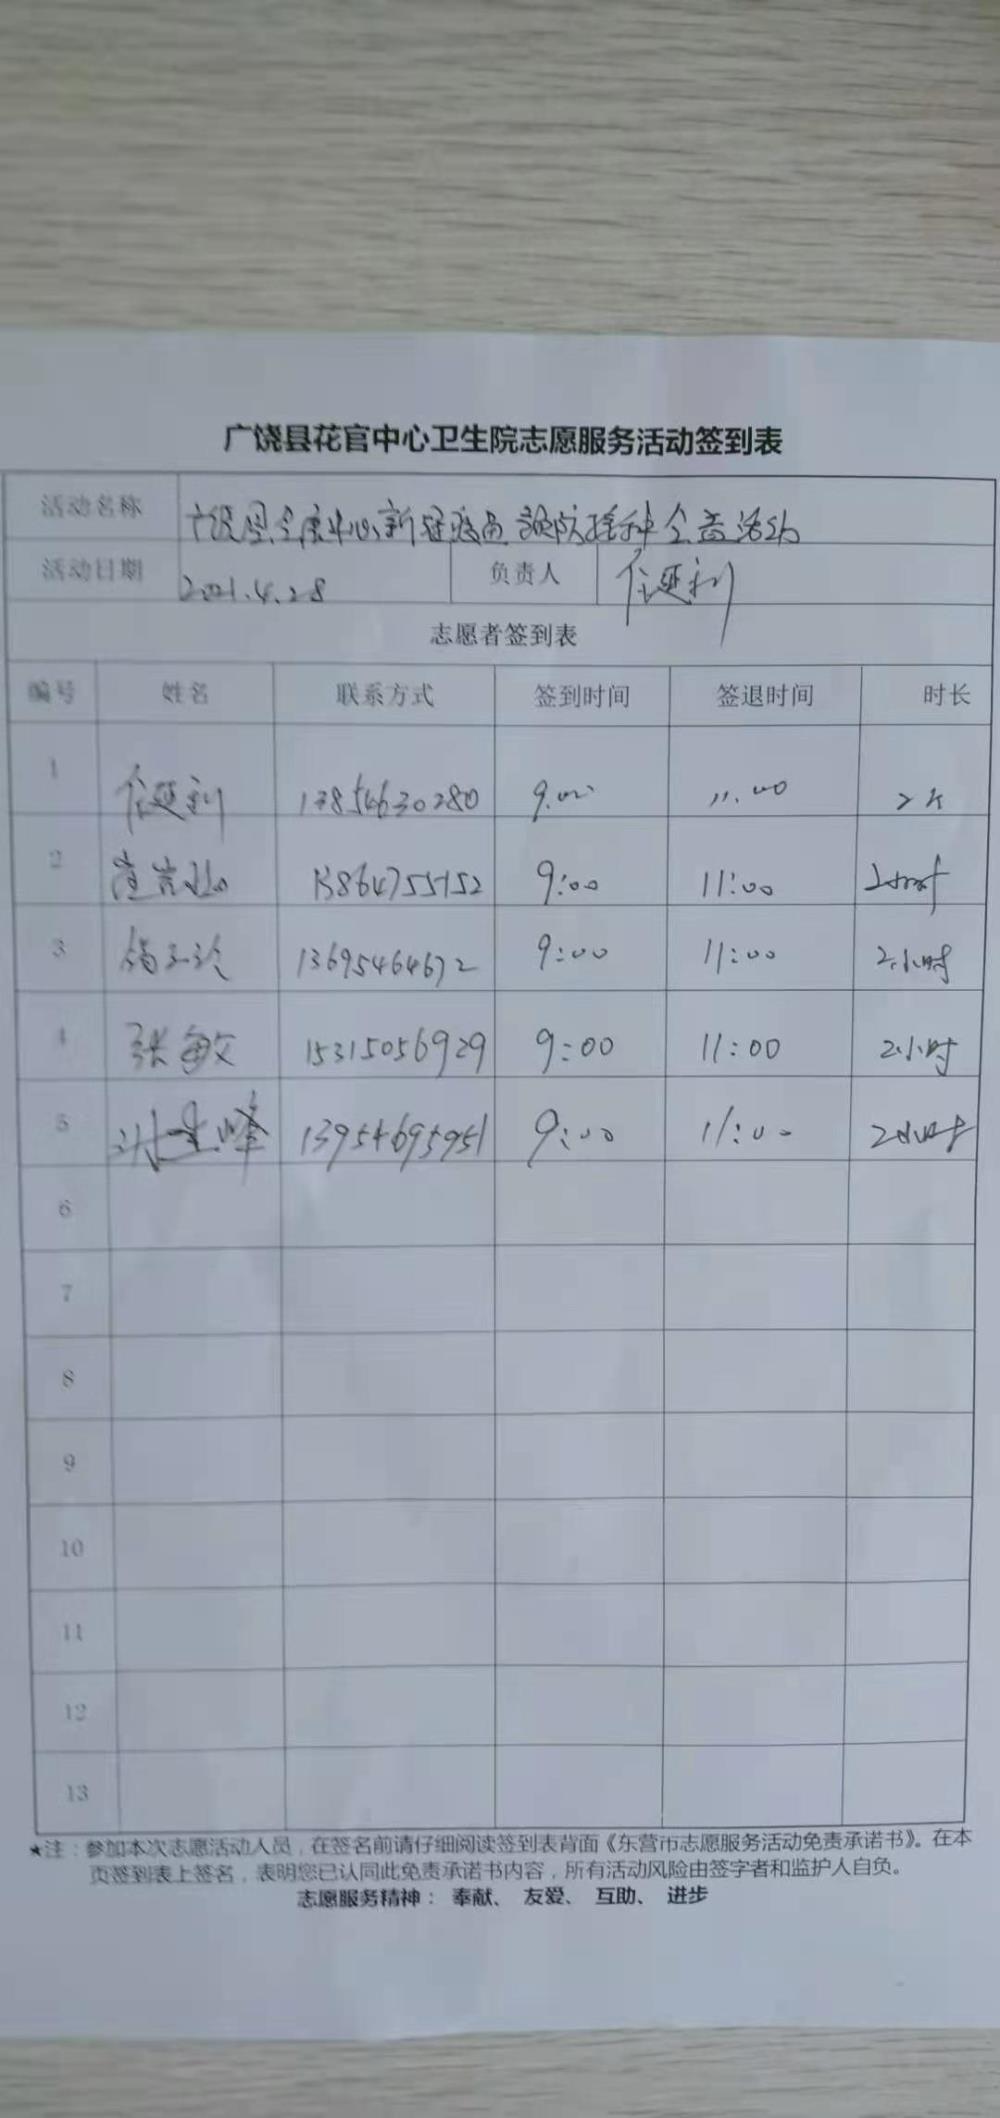 广饶县花官中心卫生院志愿服务活动签到表
活动名称 新冠疫苗预防接种公益活动
活动日期 2021.4.28 负责人 任延利
志愿者签到表
编号 姓名 联系方式 签到时间 签退时间 时长
1 任延利 13854630280 9:00 11:00 2
2 13864755152 9:00 11:00 2小时
3 13695464672 9:00 11:00 2小时
4 张敏 15315056929 9:00 11:00 2小时
5 13954695951 9:00 11:00 2小时
6
7
8
9
10
11
12
13
★注：参加本次志愿活动人员，在签名前请仔细阅读签到表背面《东营市志愿服务活动免责承诺书》。在本
页签到表上签名，表明您已认同此免责承诺书内容，所有活动风险由签字者和监护人自负。
志愿服务精神： 奉献、 友爱、 互助、 进步